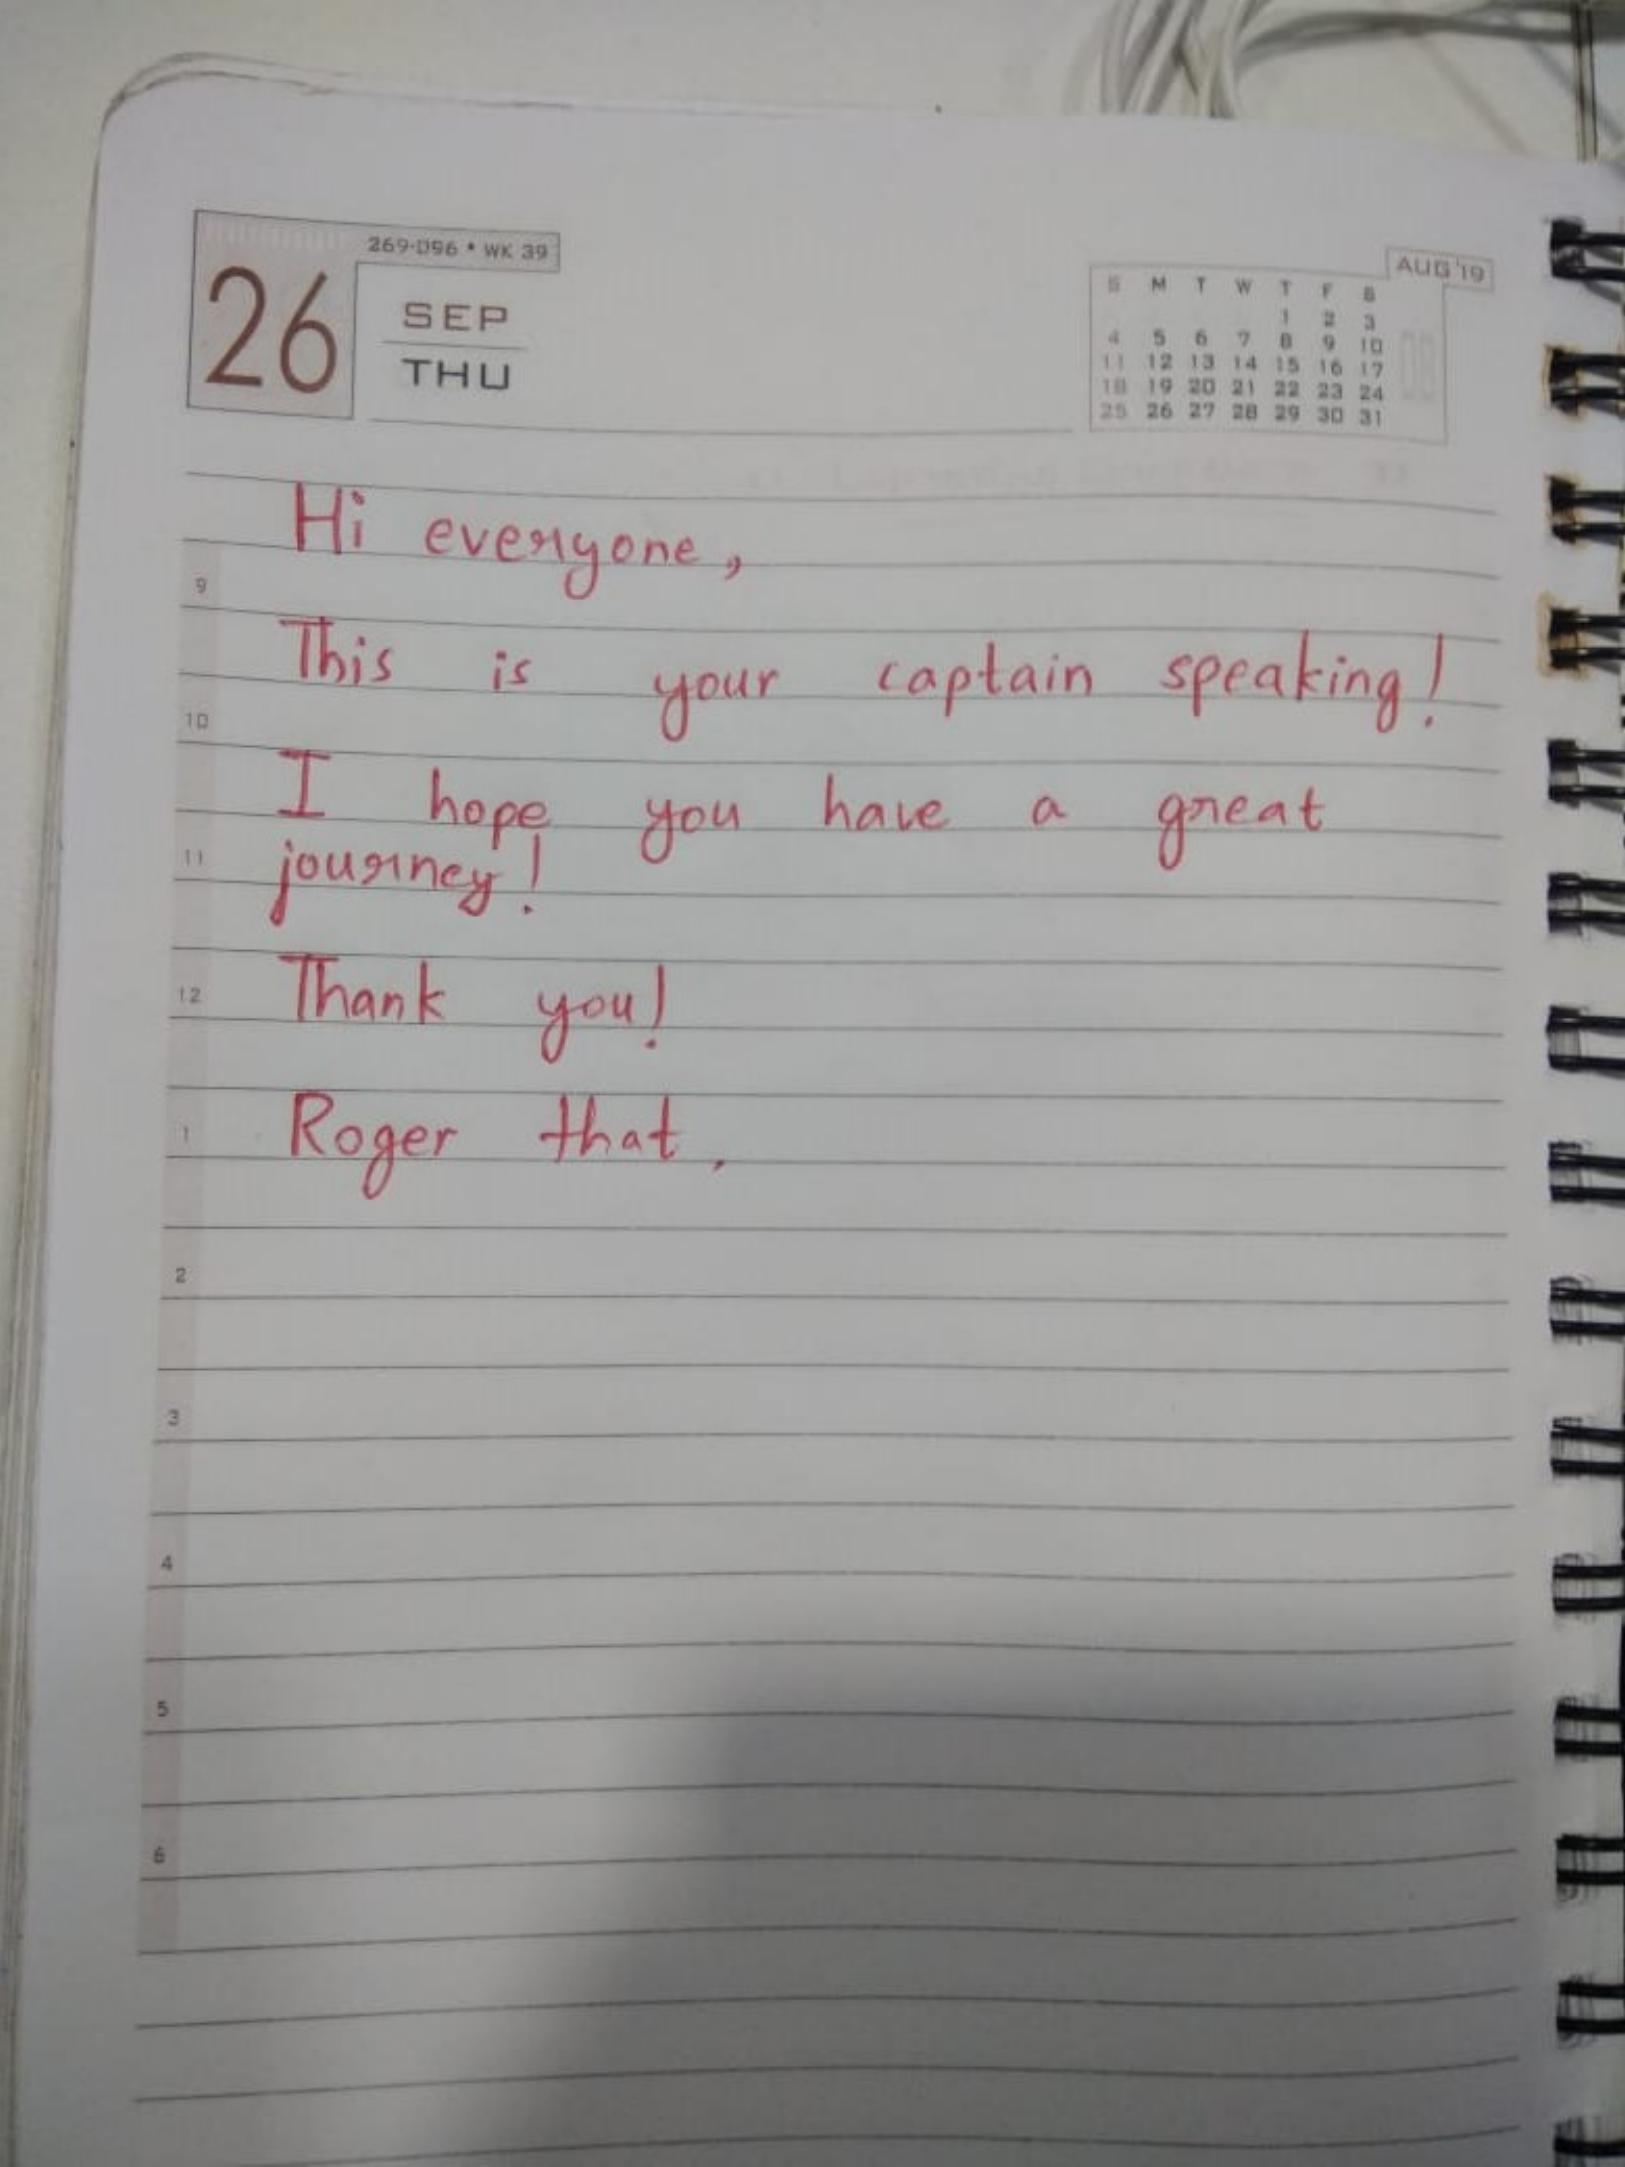 269-096 • WK 39
26
SEP
THU
AUG'19
S M T W T F S
1 2 3
4 5 6 7 8 9 10
11 12 13 14 15 16 17
18 19 20 21 22 23 24
25 26 27 28 29 30 31
Hi everyone,
9
This is your captain speaking!
10
I hope you have a great
11 journey!
12 Thank you!
1 Roger that.
2
3
4
5
6